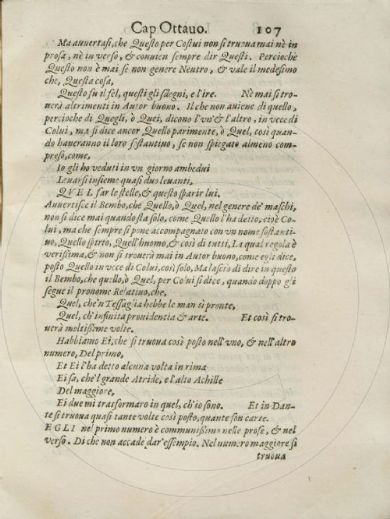 Cap Ottauo. 107
Ma auuertasi, che Questo per Costui non si truoua mai nè in
prosa, nè in verso, & conuien sempre dir Questi. Percioche
Questo non è mai se non genere Neutro, & vale il medesimo
che, Questa cosa,
Questo fu il fel, questi gli sdegni, e l'ire. Nè mai si tro-
uerà altrimenti in Autor buono. Il che non auiene di quello,
percioche di Quegli, ò Quei, dicono l'vn'& l'altro, in vece di
Colui, ma si dice ancor Quello parimente, ò Quel, così quan-
do haueranno il loro sostantiuo, se non spiegato almeno com-
preso, come,
Io gli ho veduti in vn giorno ambedui
Leuarsi insieme quasi duo leuanti,
QVEL far le stelle, & questo sparir lui.
Auuertisce il Bembo, che Quello, ò Quel, nel genere de' maschi,
non si dice mai quando sta solo, come Quello l'ha detto, cioè Co-
lui, ma che sempre si pone accompagnato con vn nome sostanti-
uo, Quello spirto, Quell'huomo, & così di tutti, La qual regola è
verissima, & non si trouerà mai in Autor buono, come egli dice,
posto Quello in vece di Colui, così solo, Ma lascio di dire in questo
il Bembo, che quello, ò Quel, per Colui si dice, quando doppo gli
segue il pronome Relatiuo, che,
Quel, che'n Tessaglia hebbe le man sì pronte,
Quel, ch'infinita prouidentia & arte. Et così si tro-
uerà moltissime volte.
Habbiamo Ei, che si truoua così posto nell'vno, & nell'altro
numero, Del primo,
Et Ei l'ha detto alcuna volta in rima
Ei sa, che'l grande Atride, e l'alto Achille
Del maggiore,
Ei due mi trasformaro in quel, ch'io sono. Et in Dan-
te si truoua quasi tante volte così posto, quante son carte.
EGLI nel primo numero è communissimo nelle prose, & nel
verso. Di che non accade dar'essempio. Nel numero maggiore si
truoua